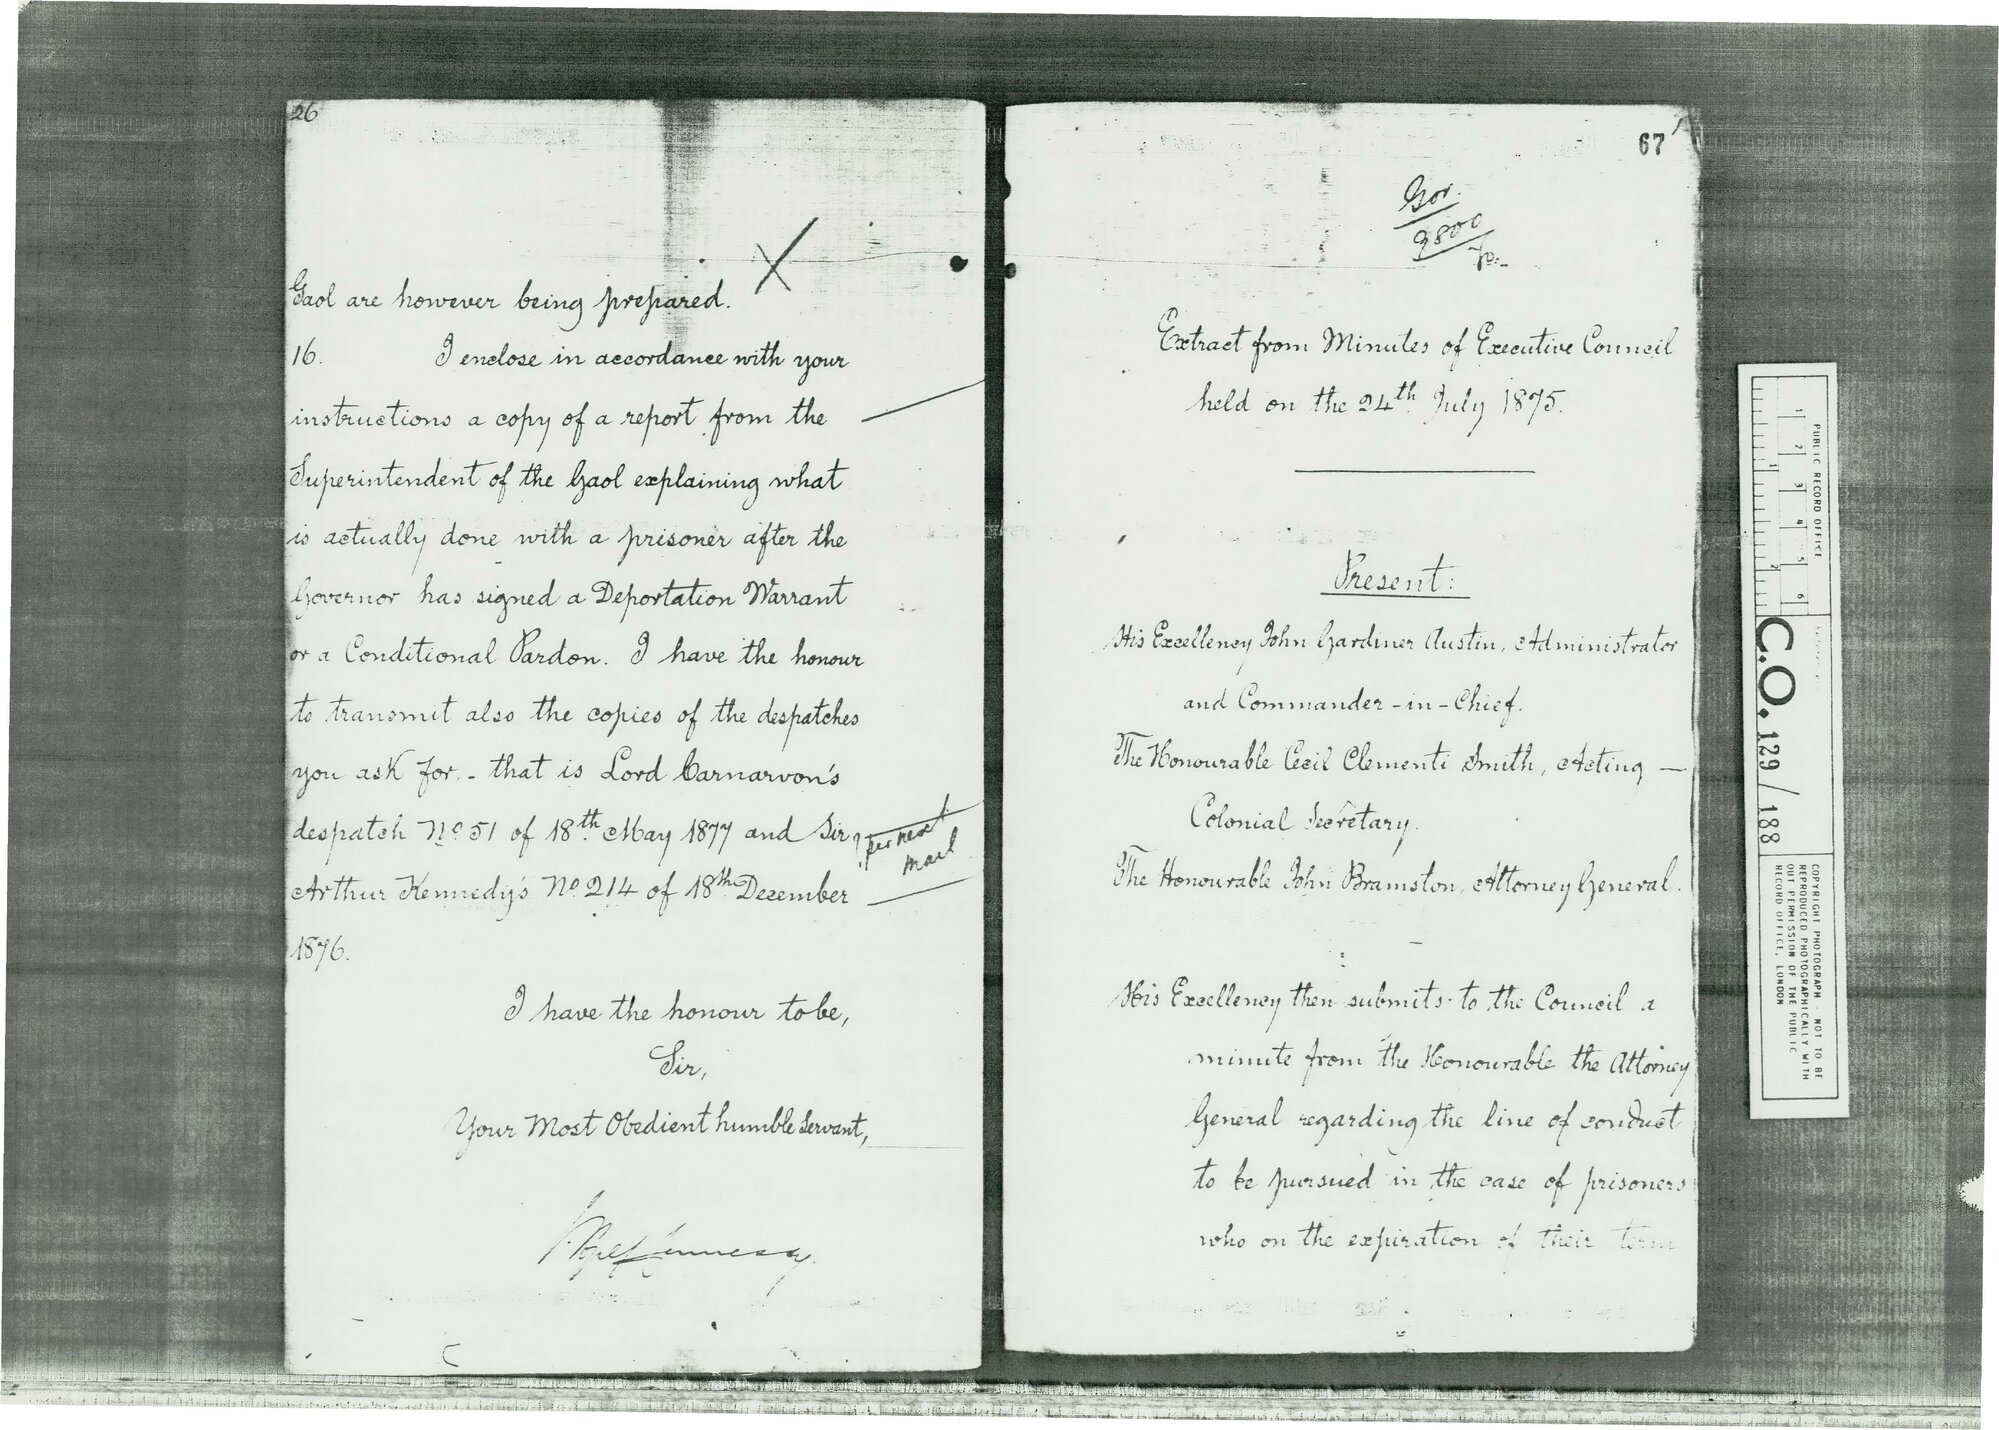 26
Gaol are however being prepared.
16. I enclose in accordance with your
instructions a copy of a report from the
Superintendent of the Gaol explaining what
is actually done with a prisoner after the
Governor has signed a Deportation Warrant
or a Conditional Pardon. I have the honour
to transmit also the copies of the despatches
you ask for, - that is Lord Carnarvon's
despatch No 51 of 18th May 1877 and Sir
Arthur Kennedy's No 214 of 18th December
1876.
per next
mail
I have the honour to be,
Sir,
Your Most Obedient humble Servant,
J. Pope Hennessy.
67
Gov.
9800
Extract from Minutes of Executive Council
held on the 24th July 1875.
Present:
His Excellency John Gardiner Austin, Administrator
and Commander-in-Chief.
The Honourable Cecil Clementi Smith, Acting -
Colonial Secretary.
The Honourable John Bramston, Attorney General.
His Excellency then submits to the Council a
minute from the Honourable the Attorney
General regarding the line of conduct
to be pursued in the case of prisoners
who on the expiration of their term
PUBLIC RECORD OFFICE
1 2 3 4 5 6
1 2
C.O. 129/188
COPYRIGHT PHOTOGRAPH - NOT TO BE
REPRODUCED PHOTOGRAPHICALLY WITH
OUT PERMISSION OF THE PUBLIC
RECORD OFFICE, LONDON